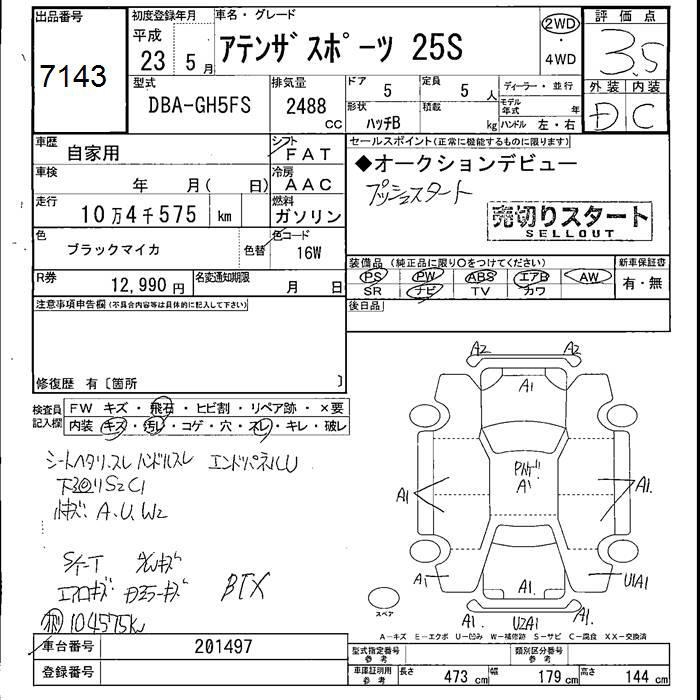 出品番号
7143
初度登録年月
平成
23 5月
車名・グレード
アテンザスポーツ 25S
2WD
・
4WD
評価点
3.5
外装 内装
D C
型式
DBA-GH5FS
排気量
2488 CC
ドア
5
形状
ハッチB
定員
5 人
積載
kg
ディーラー・並行
モデル年式 年
ハンドル 左・右
車歴
自家用
シフト
FAT
車検
年 月( 日)
冷房
AAC
走行
10万4千575 km
燃料
ガソリン
色
ブラックマイカ
色替
色コード
16W
R券
12,990円
名変通知期限
月 日
セールスポイント(正常に機能するものに限ります)
◆オークションデビュー
プッシュスタート
売切りスタート
SELLOUT
装備品(純正品に限り○をつけてください)
PS PW ABS エアB AW
SR ナビ TV カワ
新車保証書
有・無
後日品
注意事項申告欄(不具合内容等は具体的に記入して下さい)
修復歴 有〔箇所 〕
検査員記入欄
FW キズ・飛石・ヒビ割・リペア跡・×要
内装 キズ・汚レ・コゲ・穴・スレ・キレ・破レ
シートヘタリ.スレ ハンドルスレ エンドパネルU
下回りS2C1
A.U.W2
エアロキズ
BTX
104575km
A2 A2
A1
A1
A1.
A1
A1
U1A1
A1.
A1. U2A1 A1.
スペア
A-キズ E-エクボ U-凹み W-補修跡 S-サビ C-腐食 XX-交換済
車台番号
201497
登録番号
型式指定番号
参考
類別区分番号
参考
車庫証明用
参考
長さ 473 cm 幅 179 cm 高さ 144 cm